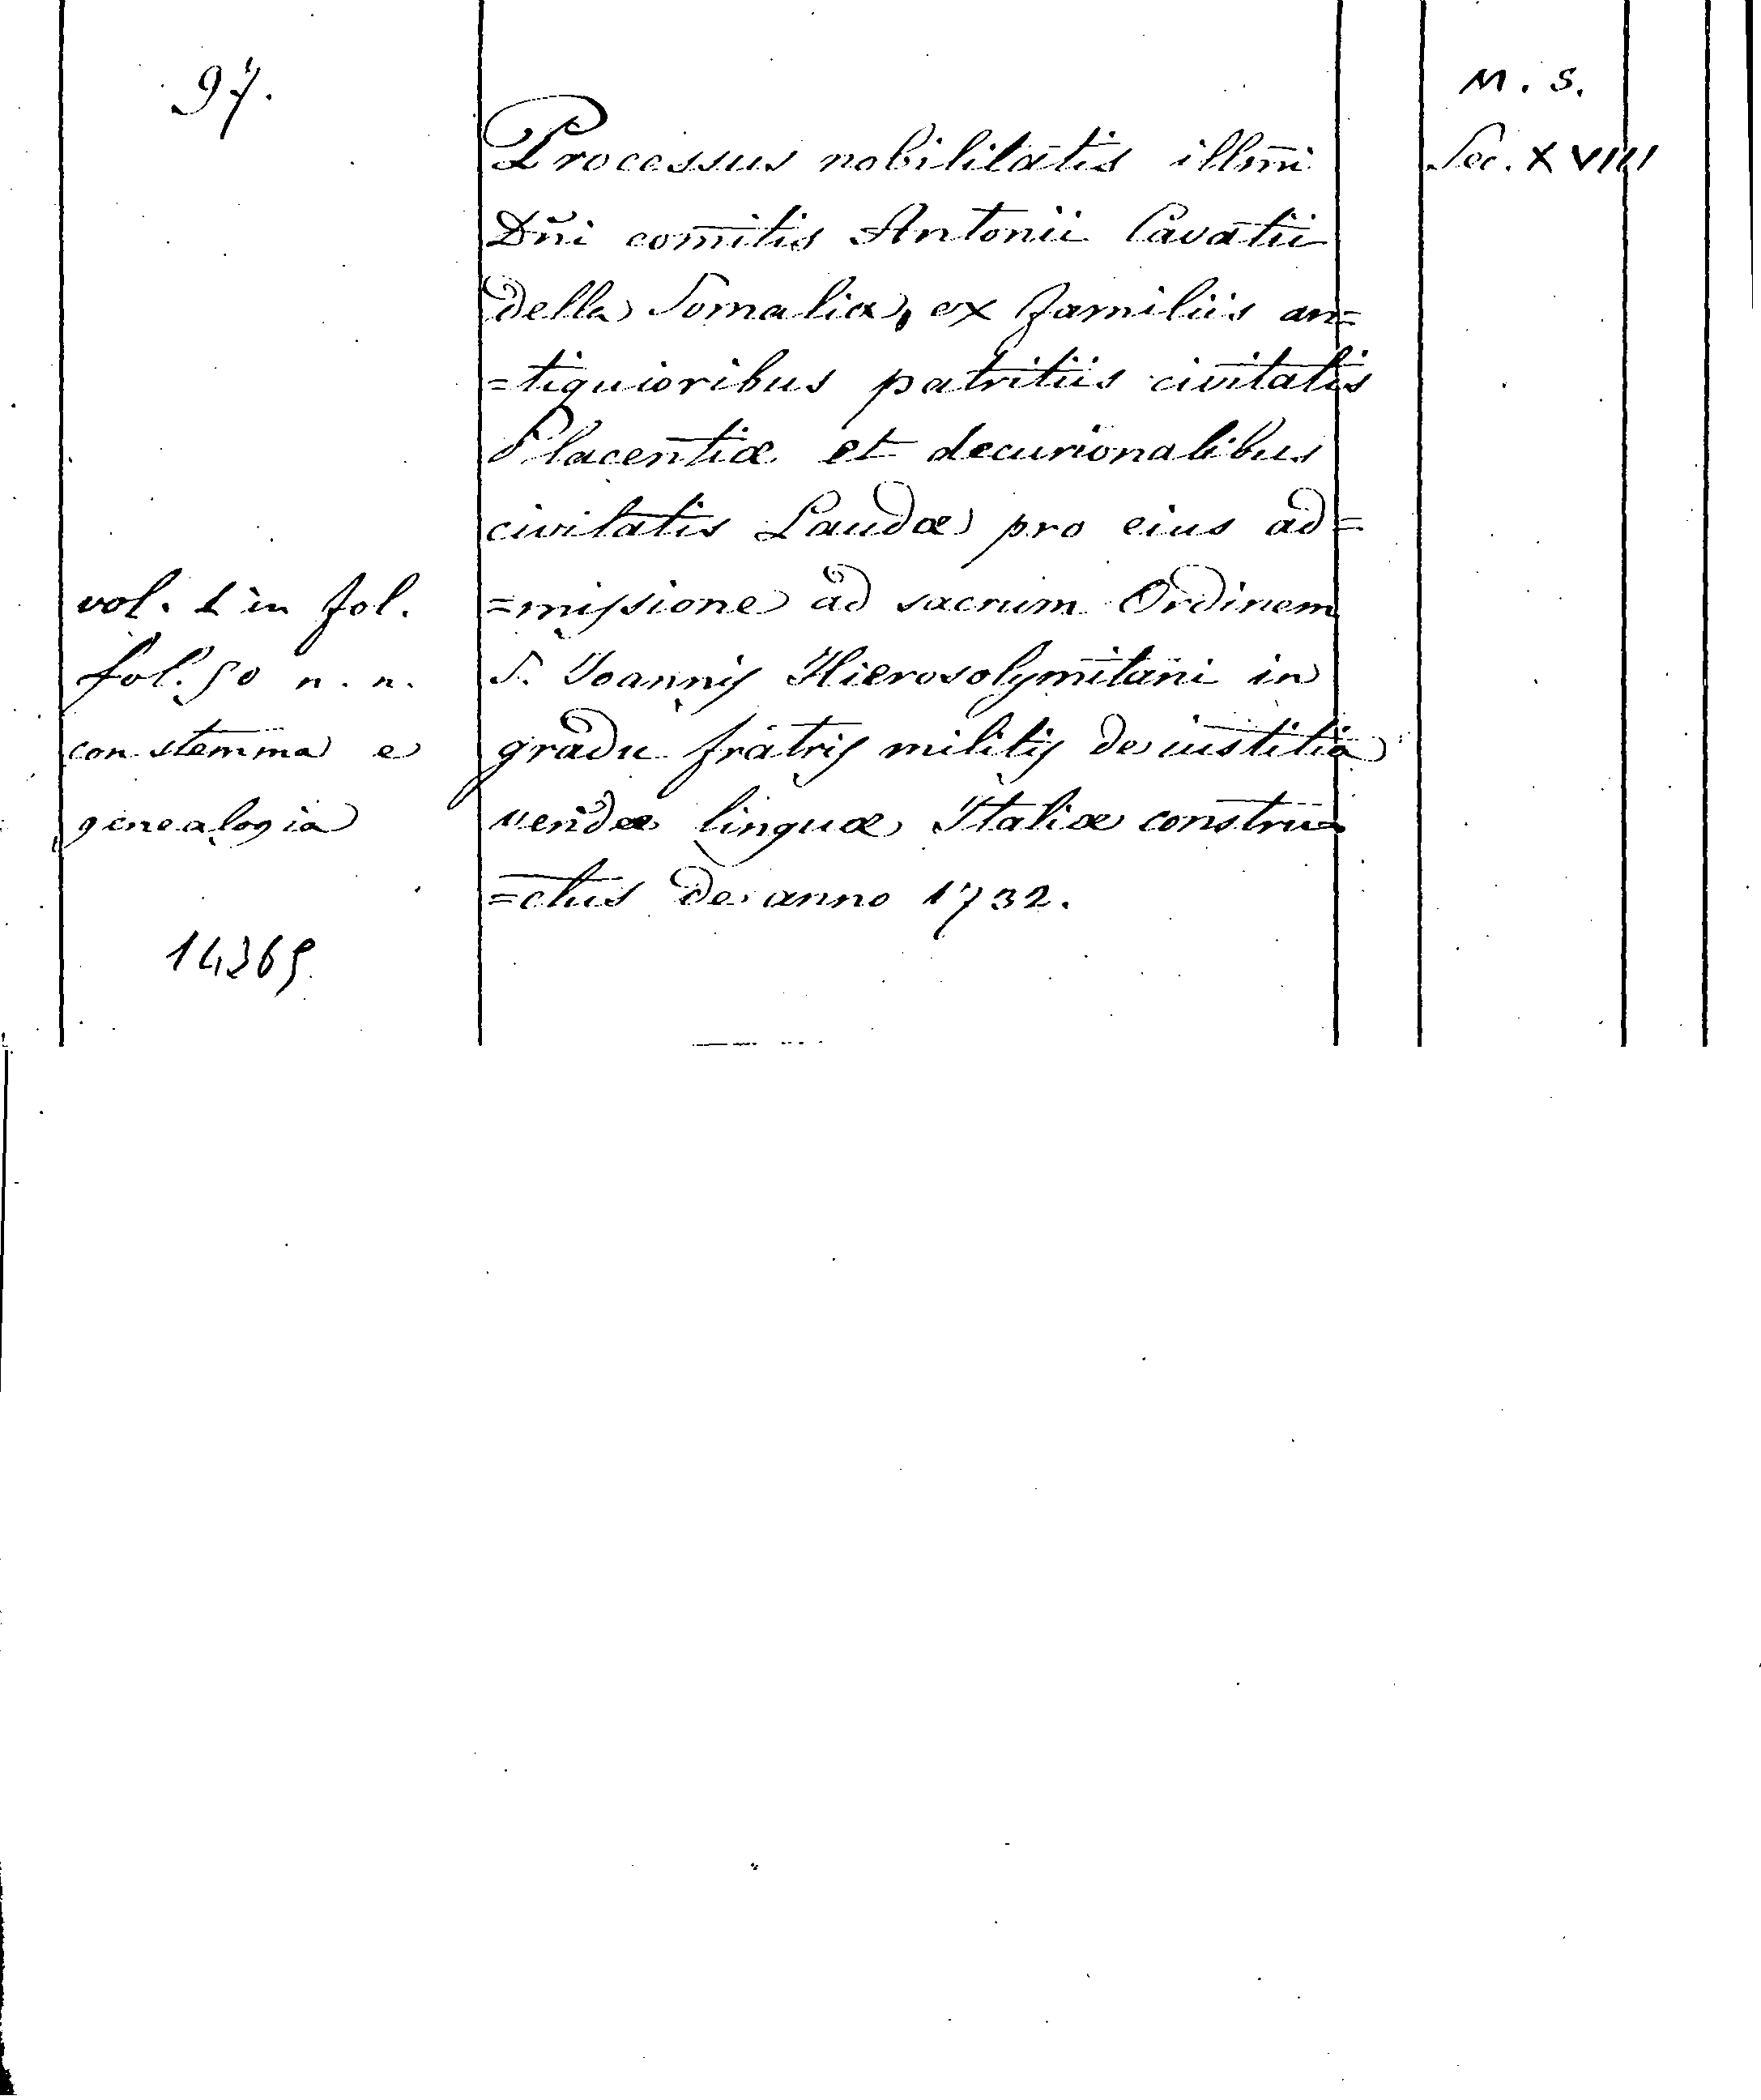 97.
M. S.
Sec. XVIII
Processus nobilitatis illm̃i
Dñi comitis Antonii Cavatii
della Somalia, ex familiis an=
=tiquioribus patritiis civitatis
Placentiæ et decurionalibus
civitatis Laudæ pro eius ad=
=missione ad sacrum Ordinem
S. Joannis Hierosolymitani in
gradu fratris militis de iustitia
vendæ linguæ Italiæ constru=
=ctus de anno 1732.
vol. 1 in fol.
fol. 50 n. n.
con stemma e
genealogia
14369